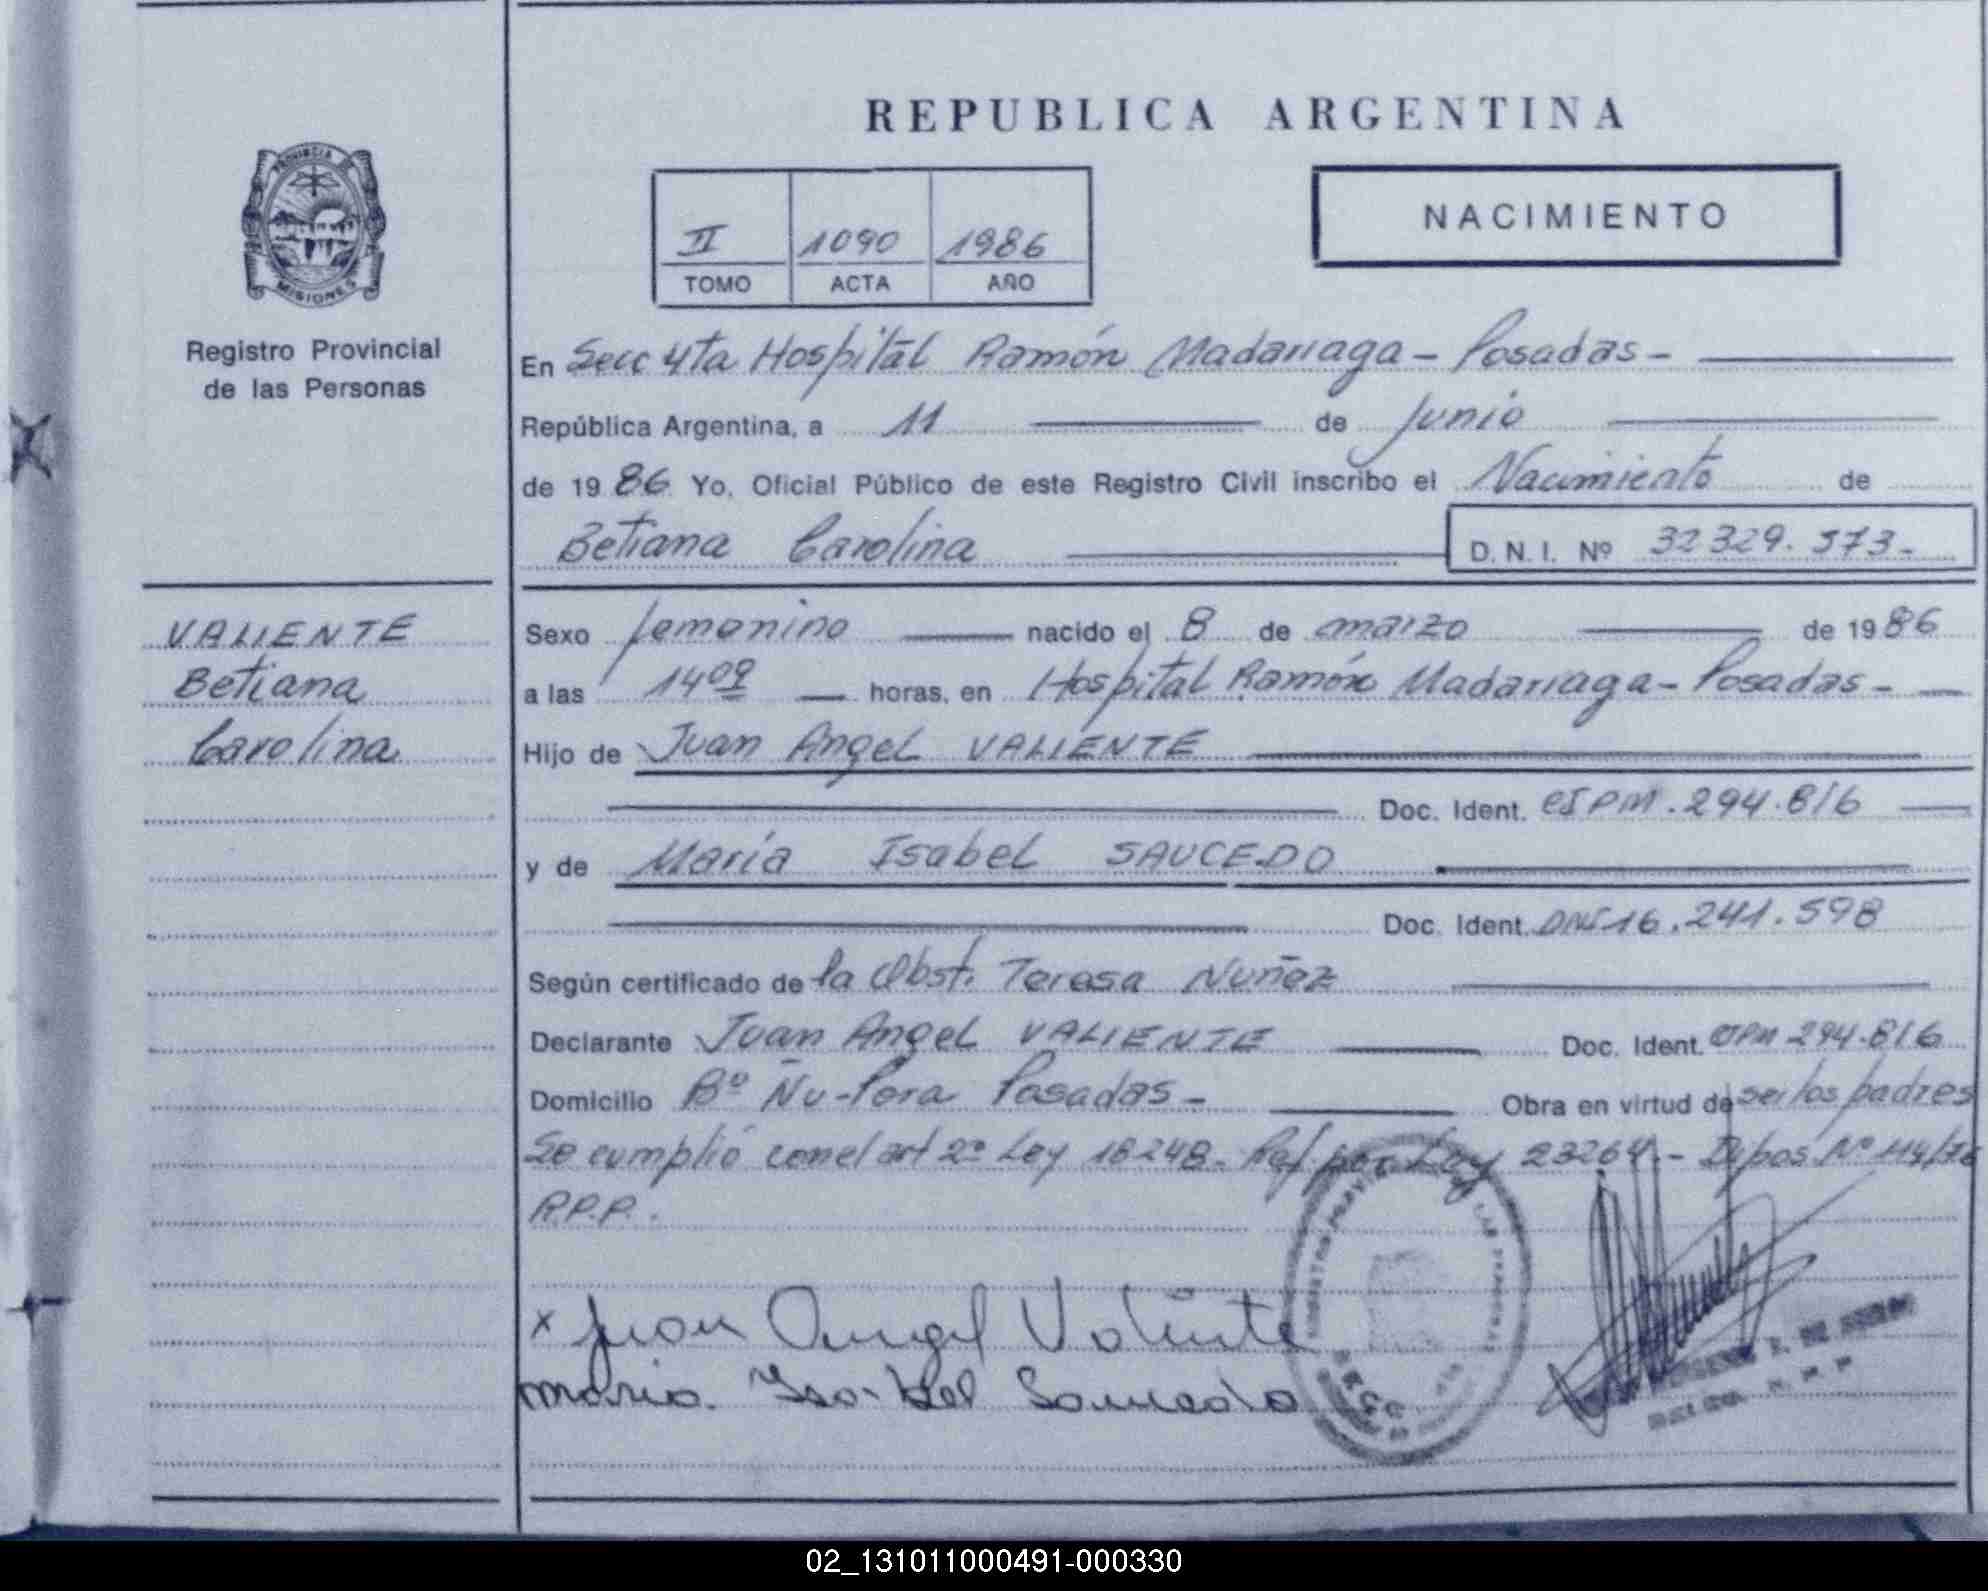 REPUBLICA ARGENTINA
PROVINCIA DE
MISIONES
Registro Provincial
de las Personas
NACIMIENTO
II 1090 1986
TOMO ACTA AÑO
En Secc 4ta Hospital Ramón Madariaga - Posadas -
República Argentina, a 11 de Junio
de 1986 Yo, Oficial Público de este Registro Civil inscribo el Nacimiento de
Betiana Carolina D.N.I. Nº 32329.573-
VALIENTE
Betiana
Carolina
Sexo femenino nacido el 8 de marzo de 1986
a las 14 09 horas, en Hospital Ramón Madariaga - Posadas -
Hijo de Juan Angel VALIENTE
Doc. Ident. CIPM. 294.816
y de María Isabel SAUCEDO
Doc. Ident. DNI 16.241.598
Según certificado de la Obst. Teresa Nuñez
Declarante Juan Angel VALIENTE Doc. Ident. CIPM 294.816
Domicilio Bº Ñu-Pora Posadas - Obra en virtud de ser los padres
Se cumplió con el art 2º Ley 18248. Ref por Ley 23264.- Dispos Nº
R.P.P.
x Juan Angel Valiente
Maria Isabel Saucedo
02_131011000491-000330